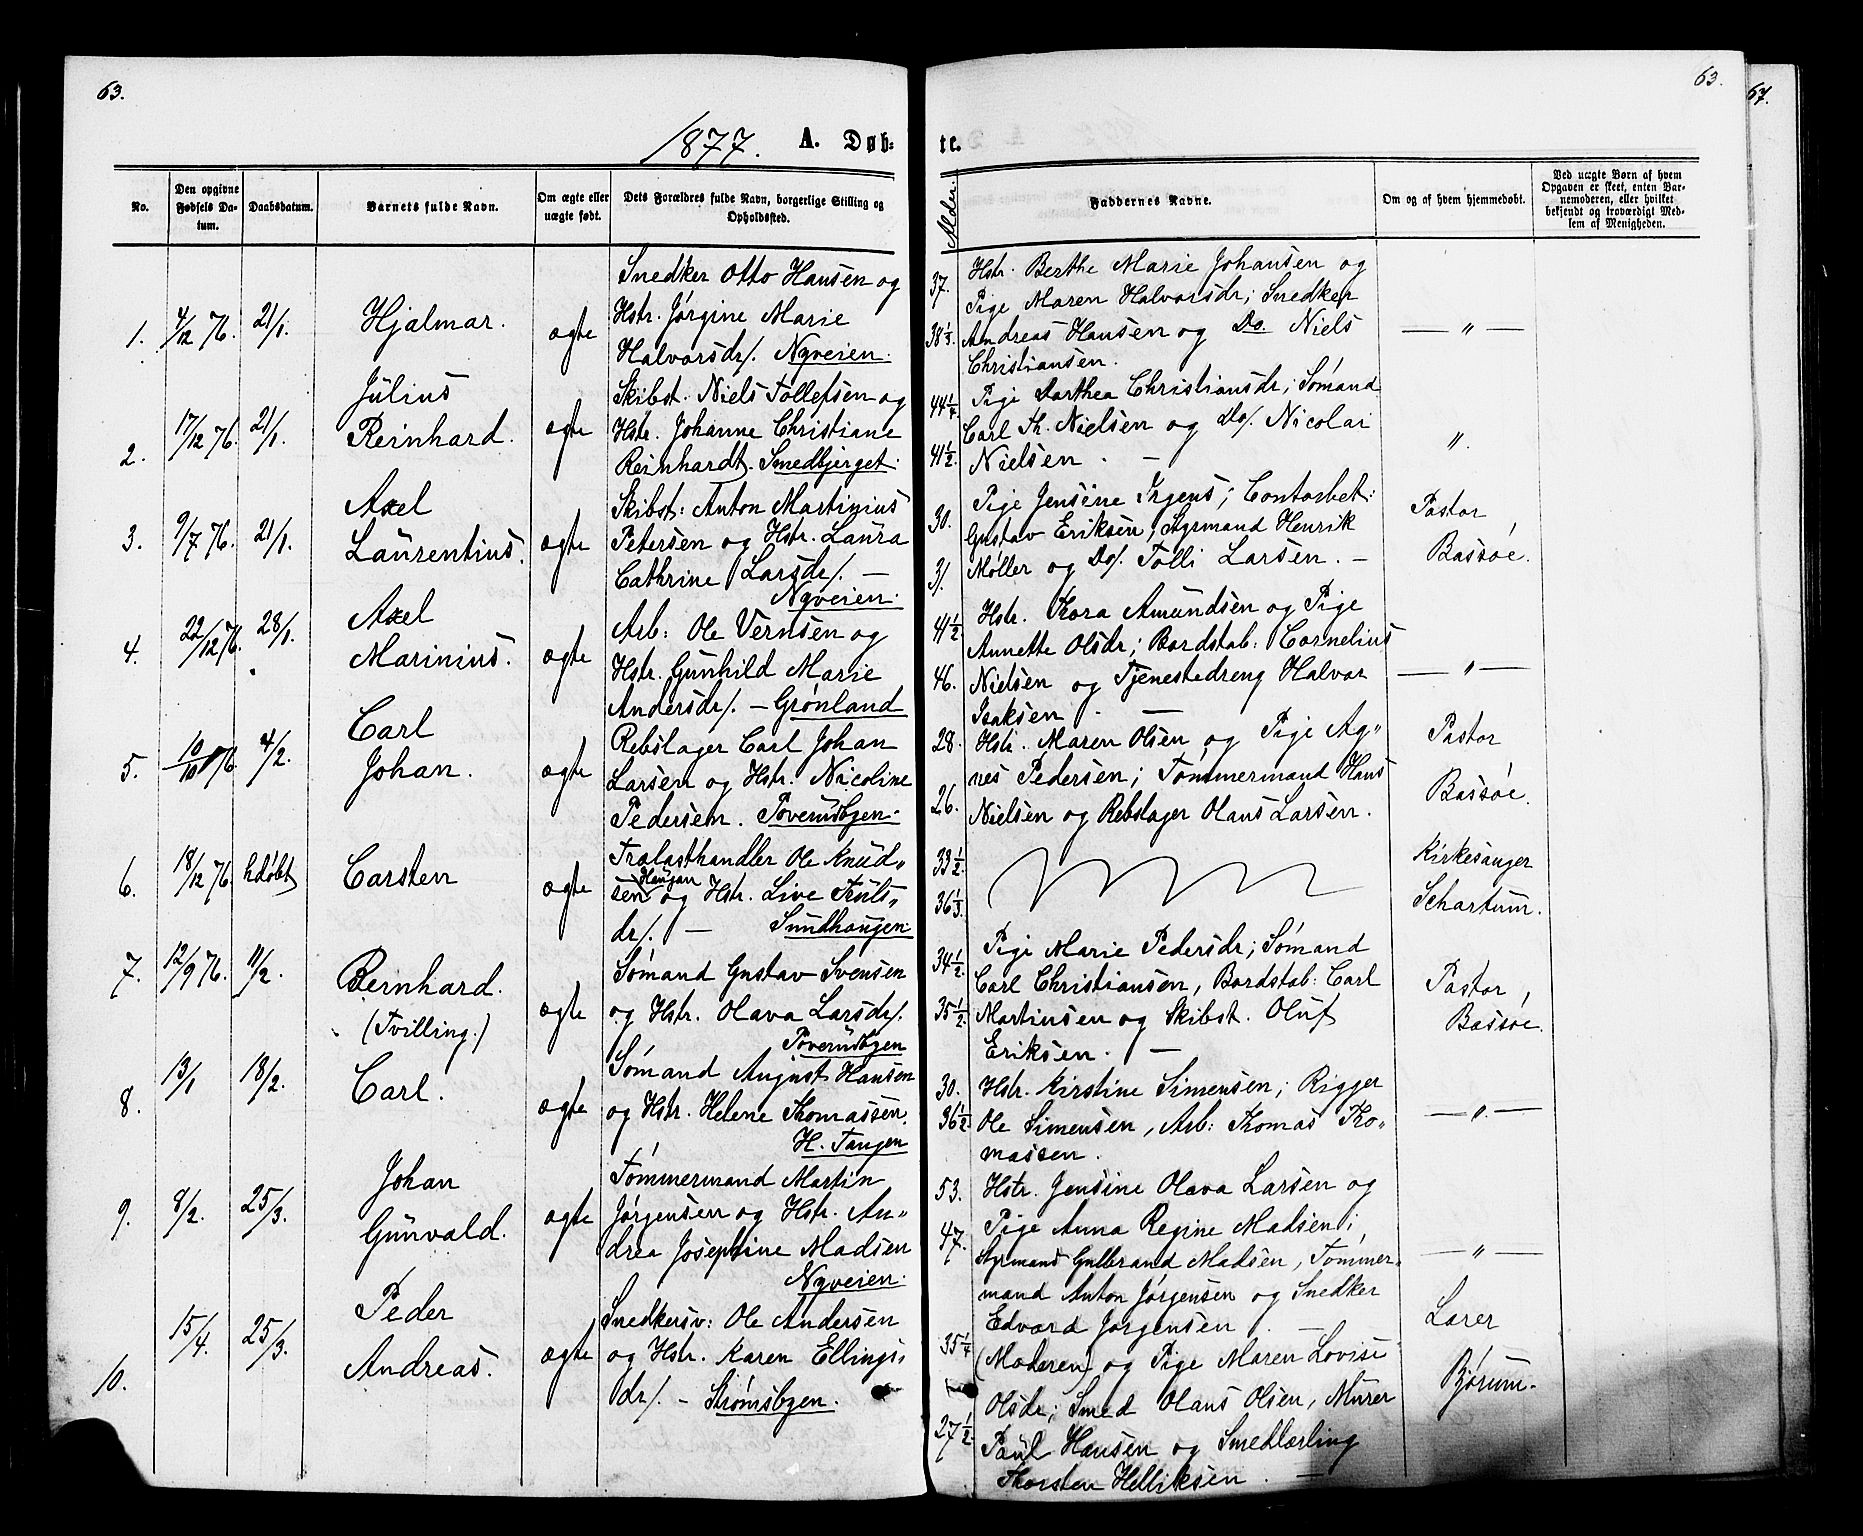 63.
1877. A. Døb-
No.
Den opgivne Fødsels Datum.
Daabsdatum.
Barnets fulde Navn.
Om ægte eller uægte født.
Dets Forældres fulde Navn, borgerlige Stilling og Opholdsted.
1. 4/12 76. 21/1. Hjalmar. ægte
Snedker Otto Hansen og
Hstr. Jørgine Marie
Halvorsdr/. Nyveien.
2. 17/12 76. 21/1. Julius
Reinhard. ægte
Skibst. Niels Tollefsen og
Hstr. Johanne Christiane
Reinhardt. Smedbjerget.
3. 9/7 76. 21/1. Axel
Laurentius. ægte
Skibst: Anton Martinius
Petersen og Hstr. Laura
Cathrine Larsdr/. —
Nyveien.
4. 22/12 76. 28/1. Axel
Marinius. ægte
Arb: Ole Vernsen og
Hstr. Gunhild Marie
Andersdr/. — Grønland
5. 10/10 76. 4/2. Carl
Johan. ægte
Rebslager Carl Johan
Larsen og Hstr. Nicoline
Pedersen. Poverudbyen.
6. 18/12 76. hdøbt Carsten ægte
Trælasthandler Ole Knud„
sen Haugan og Hstr. Live Truls„
dr/. — Sundhaugen
7. 12/9 76. 11/2. Bernhard.
(Tvilling.) ægte
Sømand Gustav Svensen
og Hstr. Olava Larsdr/.
Poverudbyen
8. 13/1 18/2. Carl. ægte
Sømand August Hansen
og Hstr. Helene Thomassen.
H. Tangen
9. 8/2. 25/3. Johan
Gunvald. ægte
Tømmermand Martin
Jørgensen og Hstr. An„
drea Josephine Madsen
Nyveien.
10. 15/4. 25/3. Peder
Andreas. ægte
Snedkersv: Ole Andersen
og Hstr. Karen Ellings„
dr/. — Strømsbyen.
63.
67.
te.
Alder.
Faddernes Navne.
Om og af hvem hjemmedøbt.
Ved uægte Børn af hvem Opgaven er skeet, enten Barnemoderen, eller hvilket bekjendt og troværdigt Medlem af Menigheden.
37. Hstr. Berthe Marie Johansen og
Pige Maren Halvorsdr; Snedker
38 1/3. Andreas Hansen og Do. Niels — „ —
Christiansen.
44 1/4 Pige Dorthea Christiansdr; Sømand
Carl Th. Nielsen og Do/. Nicolai „.
41 1/2. Nielsen . —
30. Pige Jensine Irgens; Contorbet: Pastor
Gustav Eriksen, Styrmand Henrik
31. Møller og Do/. Tolli Larsen. — Bassøe.
41 1/2 Hstr. Thora Amundsen og Pige
Annette Olsdr; Bordstab: Cornelius
46. Nielsen og Tjenestedreng Halvor — „ —
Isaksen . —
28. Hstr. Maren Olsen og Pige Ag„ Pastor
nes Pedersen; Tømmermand Hans
26. Nielsen og Rebslager Olaus Larsen. Bassøe.
33 1/2. Kirkesanger
36 1/3. Schartum.
34 1/2. Pige Marie Pedersdr; Sømand
Carl Christiansen, Bordstab: Carl Pastor
35 1/2. Martinsen og Skibst. Oluf Bassøe.
Eriksen. —
30. Hstr. Kirstine Simensen; Rigger
36 1/2 Ole Simensen, Arb: Thomas Tho„ — „ —
massen.
53. Hstr. Jensine Olava Larsen og
47. Pige Anna Regine Madsen;
Styrmand Gulbrand Madsen, Tømmer„ — „ —
mand Anton Jørgensen og Snedker
Edvard Jørgensen . — Lærer
35 1/4 (Moderen) og Pige Maren Lovise
Olsdr; Smed Olaus Olsen, Murer Bjørum.
27 1/2 Paul Hansen og Smedlærling
Thorsten Helliksen . —